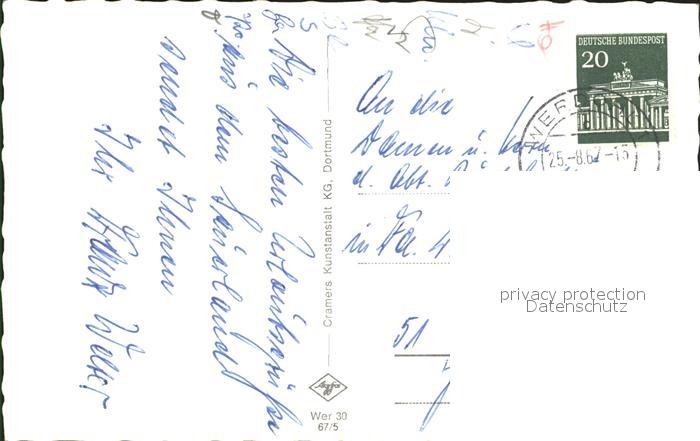 Die besten Urlaubsgrüße
aus dem Sauerland
sendet Ihnen
Ihr
Cramers Kunstanstalt KG, Dortmund
Agfa
Wer 30
67/5
DEUTSCHE BUNDESPOST
20
WERD
25.-8.67-15
An die
Damen u. Herren
d. Abt.
in Fa.
51
privacy protection
Datenschutz